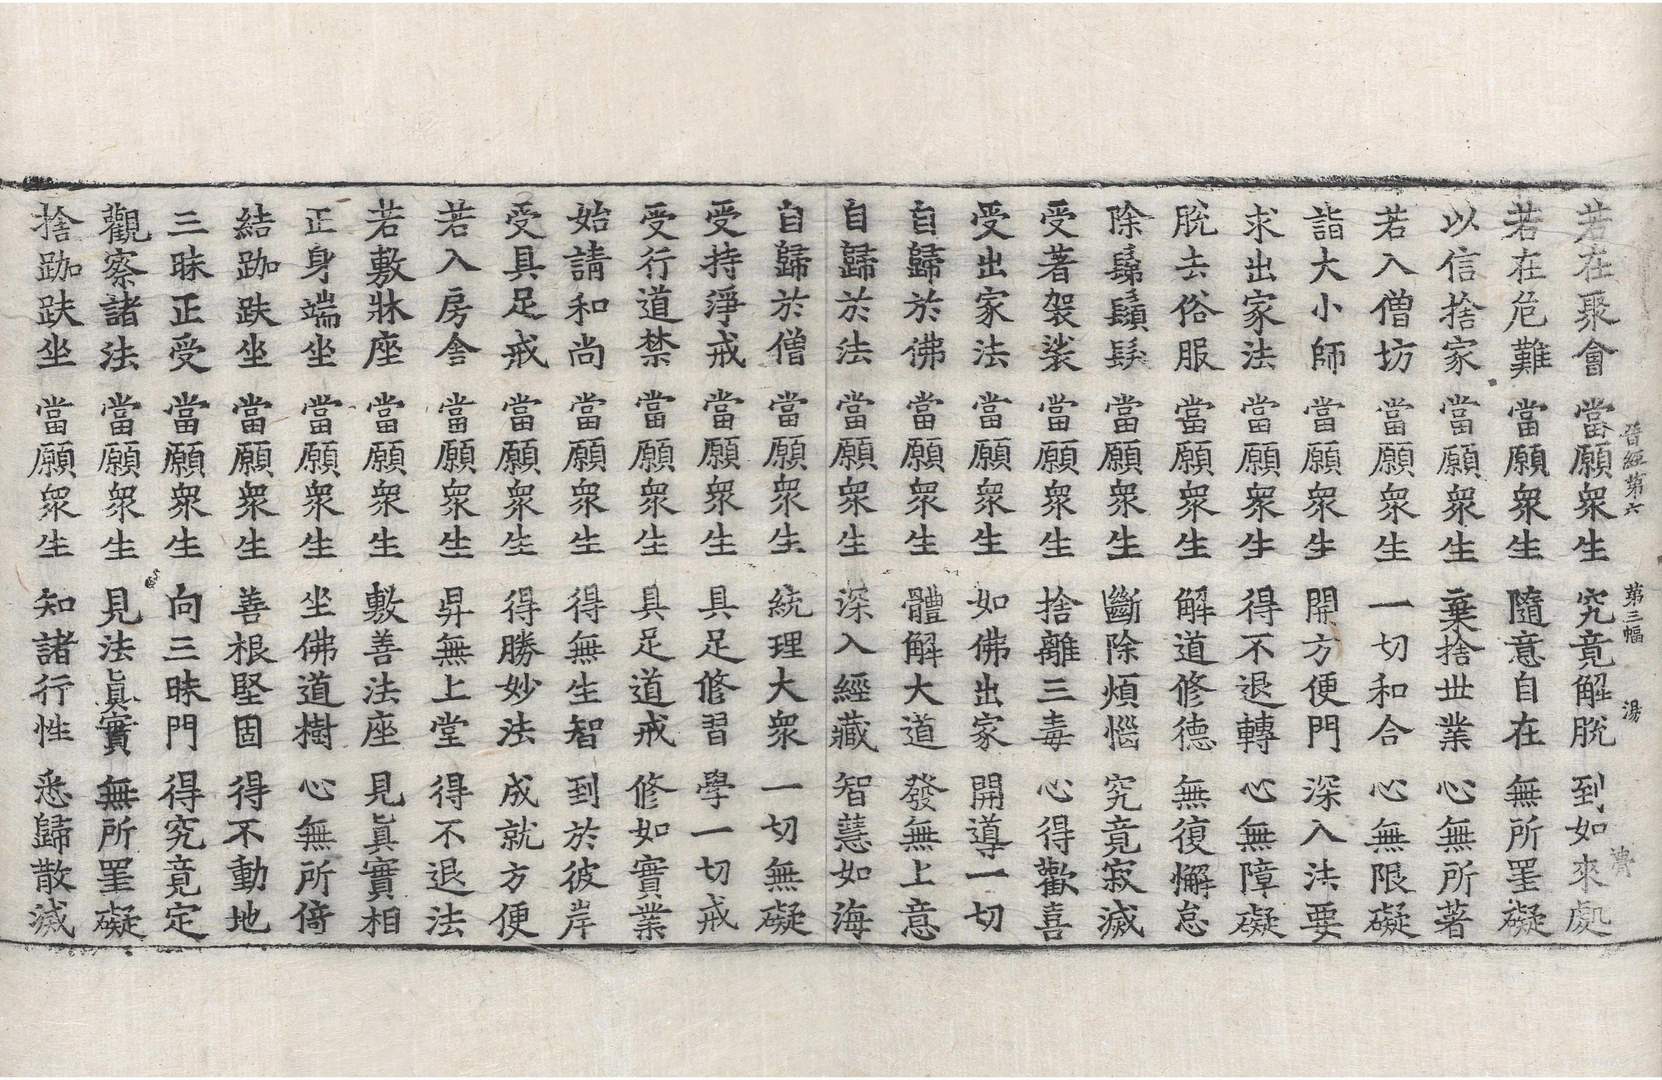 晉經第六 第三幅 湯
若在聚會 當願衆生 究竟解脫 到如來處
若在危難 當願衆生 隨意自在 無所罣礙
以信捨家 當願衆生 棄捨世業 心無所著
若入僧坊 當願衆生 一切和合 心無限礙
詣大小師 當願衆生 開方便門 深入法要
求出家法 當願衆生 得不退轉 心無障礙
脫去俗服 當願衆生 解道修德 無復懈怠
除鬀鬚髮 當願衆生 斷除煩惱 究竟寂滅
受著袈裟 當願衆生 捨離三毒 心得歡喜
受出家法 當願衆生 如佛出家 開導一切
自歸於佛 當願衆生 體解大道 發無上意
自歸於法 當願衆生 深入經藏 智慧如海
自歸於僧 當願衆生 統理大衆 一切無礙
受持淨戒 當願衆生 具足修習 學一切戒
受行道禁 當願衆生 具足道戒 修如實業
始請和尚 當願衆生 得無生智 到於彼岸
受具足戒 當願衆生 得勝妙法 成就方便
若入房舍 當願衆生 昇無上堂 得不退法
若敷牀座 當願衆生 敷善法座 見眞實相
正身端坐 當願衆生 坐佛道樹 心無所倚
結跏趺坐 當願衆生 善根堅固 得不動地
三昧正受 當願衆生 向三昧門 得究竟定
觀察諸法 當願衆生 見法眞實 無所罣礙
捨跏趺坐 當願衆生 知諸行性 悉歸散滅